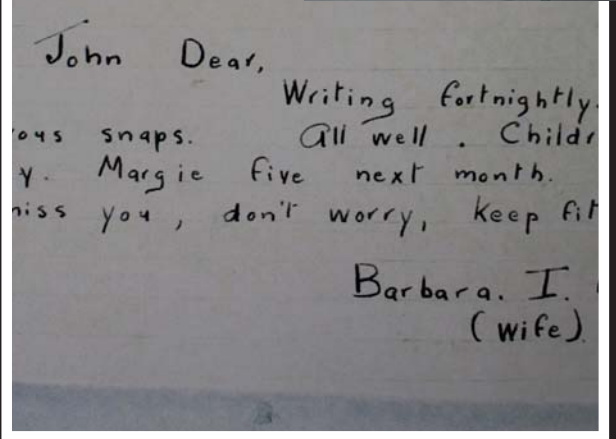 John Dear,
Writing fortnightly.
snaps. All well. Childr
y. Margie five next month.
miss you, don't worry, keep fit
Barbara. I.
(wife).